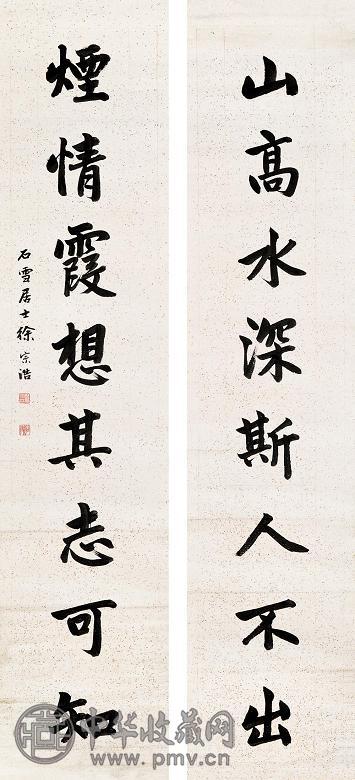 山高水深斯人不出
煙情霞想其志可知
石雪居士徐宗浩
中华收藏网
www.pmv.cn